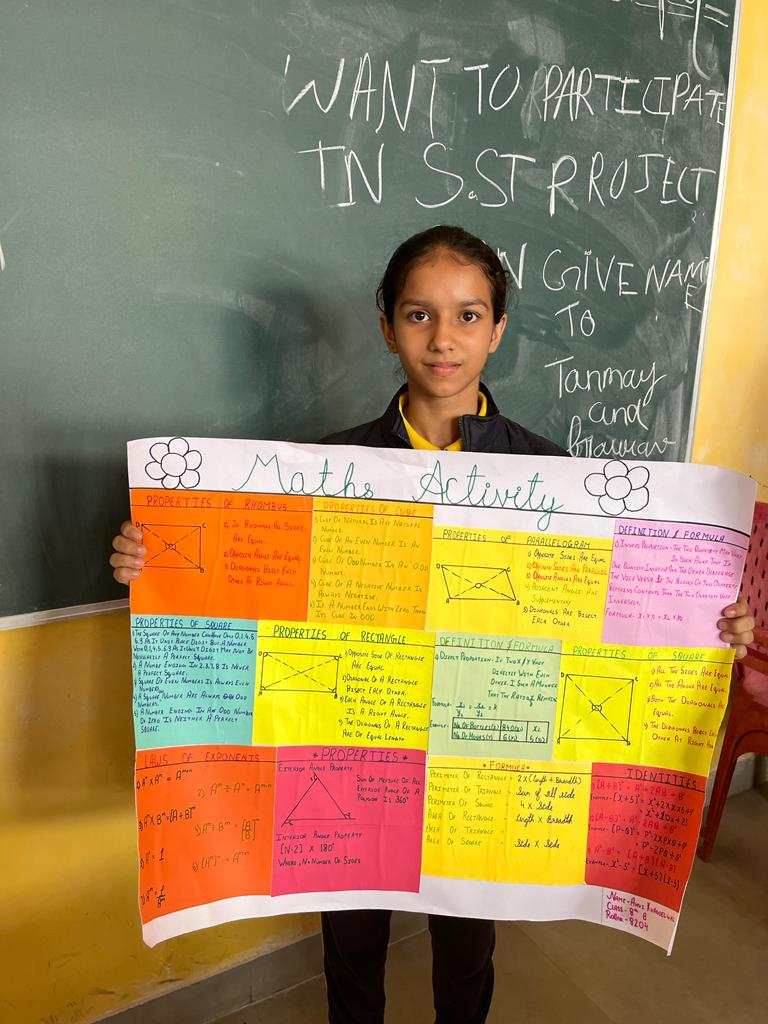 WANT TO PARTICIPATE
IN S.ST PROJECT
GIVE NAME
TO
Tanmay
and
Maths Activity
PROPERTIES OF RHOMBUS
1) IN RHOMBUS ALL SIDES
ARE EQUAL.
2) OPPOSITE ANGLE ARE EQUAL
3) DIAGONALS BISECT EACH
OTHER AT RIGHT ANGLE.
PROPERTIES OF CUBE
1) CUBE OF NATURAL IS ANY NATURAL
NUMBER.
2) CUBE OF AN EVEN NUMBER IS AN
EVEN NUMBER.
3) CUBE OF ODD NUMBER IN AN ODD
NUMBER
4) CUBE OF A NEGATIVE NUMBER IS
ALWAYS NEGATIVE.
5) IF A NUMBER ENDS WITH ZERO THEN
ITS CUBE IN ODD.
PROPERTIES OF PARALLELOGRAM
1) OPPOSITE SIDES ARE EQUAL.
2) OPPOSITE SIDES ARE PARALLEL
3) OPPOSITE ANGLES ARE EQUAL
4) ADJACENT ANGLE ARE
SUPPLEMENTARY
5) DIAGONALS ARE BISECT
EACH OTHER
DEFINITION & FORMULA
PROPORTION : THE TWO QUANTITY MAY VARY
IN SUCH A WAY THAT IF
ONE QUANTITY THE OTHER DECREASE
THE VICE VERSA IF THE OF TWO QUANTITY
REMAINS CONSTANTS THEN THE TWO QUANTITY VARY
INVERSELY.
FORMULA:-
PROPERTIES OF SQUARE
1) THE SQUARE OF ANY NUMBER CAN HAVE ONLY 0,1,4,5,
6,9 AS IT UNIT PLACE DIGIT BUT A NUMBER
WITH 0,1,4,5,6,9 AS IT UNIT DIGIT MAY NOT BE
NECESSARILY A PERFECT SQUARE.
2) A NUMBE ENDING IN 2,3,7,8 IS NEVER
A PERFECT SQUARE.
3) SQUARE OF EVEN NUMBERS IS ALWAYS EVEN
NUMBER.
4) A SQUARE NUMBER ARE ALWAYS ODD
NUMBER.
5) A NUMBER ENDING IN AN ODD NUMBER
OF ZERO IS NEITHER A PERFECT
SQUARE.
PROPERTIES OF RECTANGLE
1) OPPOSITE SIDE OF RECTANGLE
ARE EQUAL.
2) DIAGONAL OF A RECTANGLE
BISECT EACH OTHER.
3) EACH ANGLE OF A RECTANGLE
IS A RIGHT ANGLE.
4) THE DIAGONALS OF A RECTANGLE
ARE OF EQUAL LENGTH
DEFINITION & FORMULA
DIRECT PROPORTION: IF TWO X & Y VARY
DIRECTLY WITH EACH
OTHER. I SUCH A MANNER
THAT THE RATIO REMAINS
FORMULA: X₁/Y₁ = X₂/Y₂ = K
EXAMPLE:
NO. OF BOTTLES(X) 840(X₁) X₂
NO. OF HOURS(Y) 6(Y₁) 5(Y₂)
PROPERTIES OF SQUARE
1) ALL THE SIDES ARE EQUAL
2) ALL THE ANGLE ARE EQUAL.
3) BOTH THE DIAGONALS ARE
EQUAL.
4) THE DIAGONALS BISECT EACH
OTHER AT RIGHT ANGLE
LAWS OF EXPONENTS
1) Aᵐ × Aⁿ = Aᵐ⁺ⁿ
2) Aᵐ ÷ Aⁿ = Aᵐ⁻ⁿ
3) Aᵐ × Bᵐ = [A×B]ᵐ
4) Aᵐ ÷ Bᵐ = [A/B]ᵐ
5) A⁰ = 1
6) [Aᵐ]ⁿ = Aᵐˣⁿ
*PROPERTIES*
EXTERIOR ANGLE PROPERTY
SUM OF MEASURE OF ALL
EXTERIOR ANGLE OF A
POLYGON IS 360°
INTERIOR ANGLE PROPERTY
[N-2] × 180°
WHERE, N = NUMBER OF SIDES
• FORMULA •
PERIMETER OF RECTANGLE - 2×(Length + Breadth)
PERIMETER OF TRIANGLE - Sum of all side
PERIMETER OF SQUARE - 4 × side
AREA OF RECTANGLE - Length × Breadth
AREA OF TRIANGLE -
AREA OF SQUARE - side × side
IDENTITIES
EXAMPLE: [X+5]² = X²+2×X×5+5²
= X²+10X+25
= P²-2PQ+Q²
A²-B² = [A+B][A-B]
EXAMPLE: X²-5² = [X+5][X-5]
CLASS - 8ᵗʰ B
ROLLNO - 8204